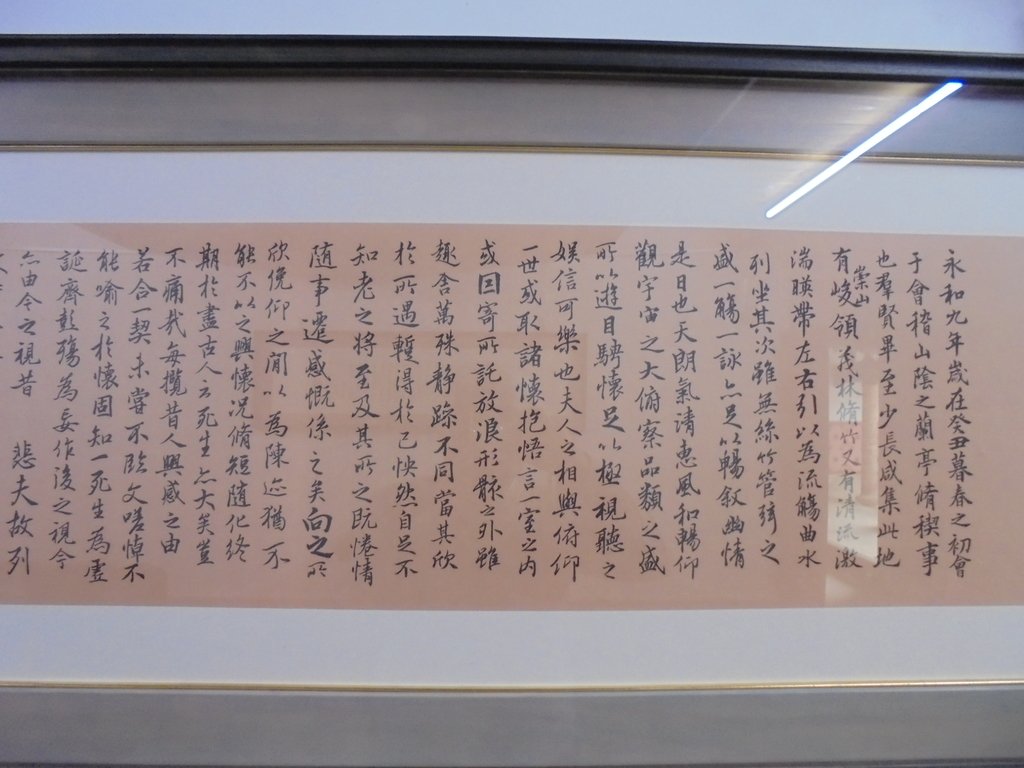 永和九年歲在癸丑暮春之初會
于會稽山陰之蘭亭脩稧事
也羣賢畢至少長咸集此地
有崇山峻領茂林脩竹又有清流激
湍暎帶左右引以為流觴曲水
列坐其次雖無絲竹管弦之
盛一觴一詠亦足以暢叙幽情
是日也天朗氣清惠風和暢仰
觀宇宙之大俯察品類之盛
所以遊目騁懷足以極視聽之
娛信可樂也夫人之相與俯仰
一世或取諸懷抱悟言一室之內
或因寄所託放浪形骸之外雖
趣舍萬殊靜躁不同當其欣
於所遇暫得於己怏然自足不
知老之將至及其所之既惓情
隨事遷感慨係之矣向之所
欣俛仰之閒以為陳迹猶不
能不以之興懷況脩短隨化終
期於盡古人云死生亦大矣豈
不痛哉每攬昔人興感之由
若合一契未嘗不臨文嗟悼不
能喻之於懷固知一死生為虛
誕齊彭殤為妄作後之視今
亦由今之視昔 悲夫故列